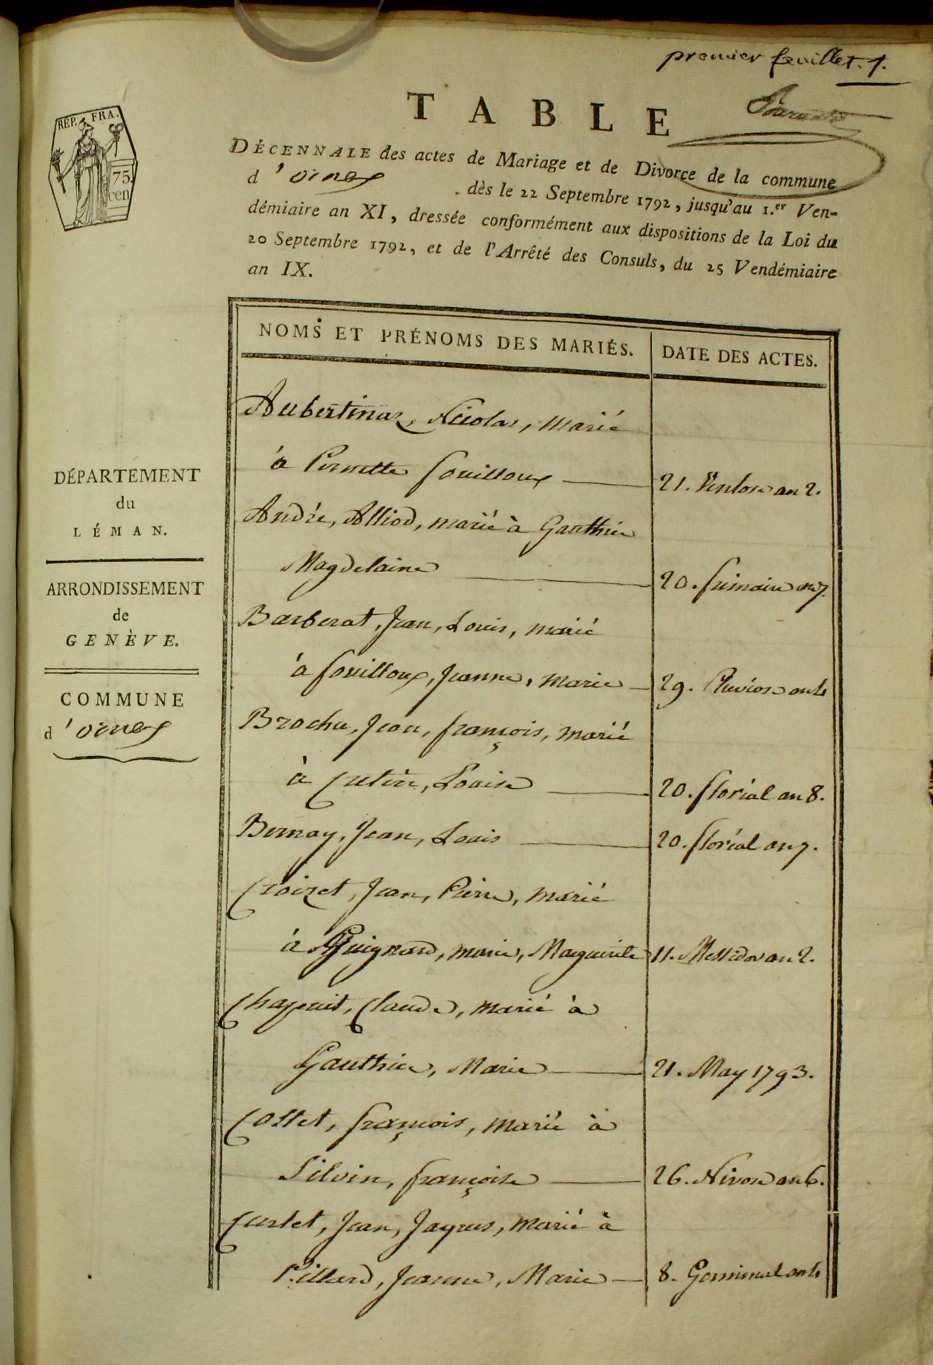 premier feuillet. 1.
REP. FRA.
75
cen
TABLE
DÉCENNALE des actes de Mariage et de Divorce de la commune
d'ornex . dès le 22 Septembre 1792, jusqu'au 1.er Ven-
démiaire an XI, dressée conformément aux dispositions de la Loi du
20 Septembre 1792, et de l'Arrêté des Consuls, du 25 Vendémiaire
an IX.
DÉPARTEMENT
du
LÉMAN.
ARRONDISSEMENT
de
GENÈVE.
COMMUNE
d'ornex
NOMS ET PRÉNOMS DES MARIÉS. DATE DES ACTES.
Aubertinaz, Nicolas, marié
à Pernette fouilloux 21. Ventose an 2.
André, Alliod, marié à Gauthier
Magdelaine 20. frimaire an 7.
Barberat, Jean, Louis, marié
à fouilloux, Jeanne, marie 29. Pluviose an 4
Brochu, Jean, françois, marié
à Louise 20. floréal an 8.
Jean, Louis 20. floréal an 7.
Croizet, Jean, Pierre, marié
à Guignard, marie, Marguerite 11. Messidor an 2.
Chapuit, Claude, marié à
Gauthier, Marie 21. May 1793.
Collet, françois, marié à
Silvin, françoise 26. Nivose an 6.
Curlet, Jean, Jaques, marié à
Jeanne, Marie 8. Germinal an 4